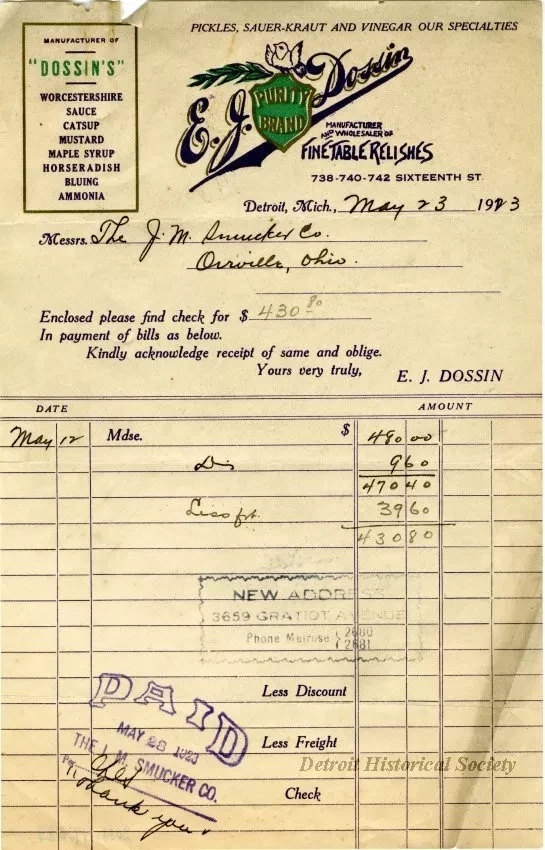 PICKLES, SAUER-KRAUT AND VINEGAR OUR SPECIALTIES
MANUFACTURER OF
"DOSSIN'S"
WORCESTERSHIRE
SAUCE
CATSUP
MUSTARD
MAPLE SYRUP
HORSERADISH
BLUING
AMMONIA
E. J. Dossin
PURITY
BRAND
MANUFACTURER
AND WHOLESALER OF
FINE TABLE RELISHES
738-740-742 SIXTEENTH ST.
Detroit, Mich., May 23 1923
Messrs. The J. M. Smucker Co.
Orrville, Ohio.
Enclosed please find check for $ 430 80
In payment of bills as below.
Kindly acknowledge receipt of same and oblige.
Yours very truly,
E. J. DOSSIN
DATE AMOUNT
May 12 Mdse. $ 480 00
Dis 9 60
470 40
Less frt. 39 60
430 80
NEW ADDRESS
3659 GRATIOT AVENUE
Phone Melrose 2680
2681
PAID
Less Discount
MAY 28 1923
Less Freight
THE J. M. SMUCKER CO.
Detroit Historical Society
Per
Check
Thank you